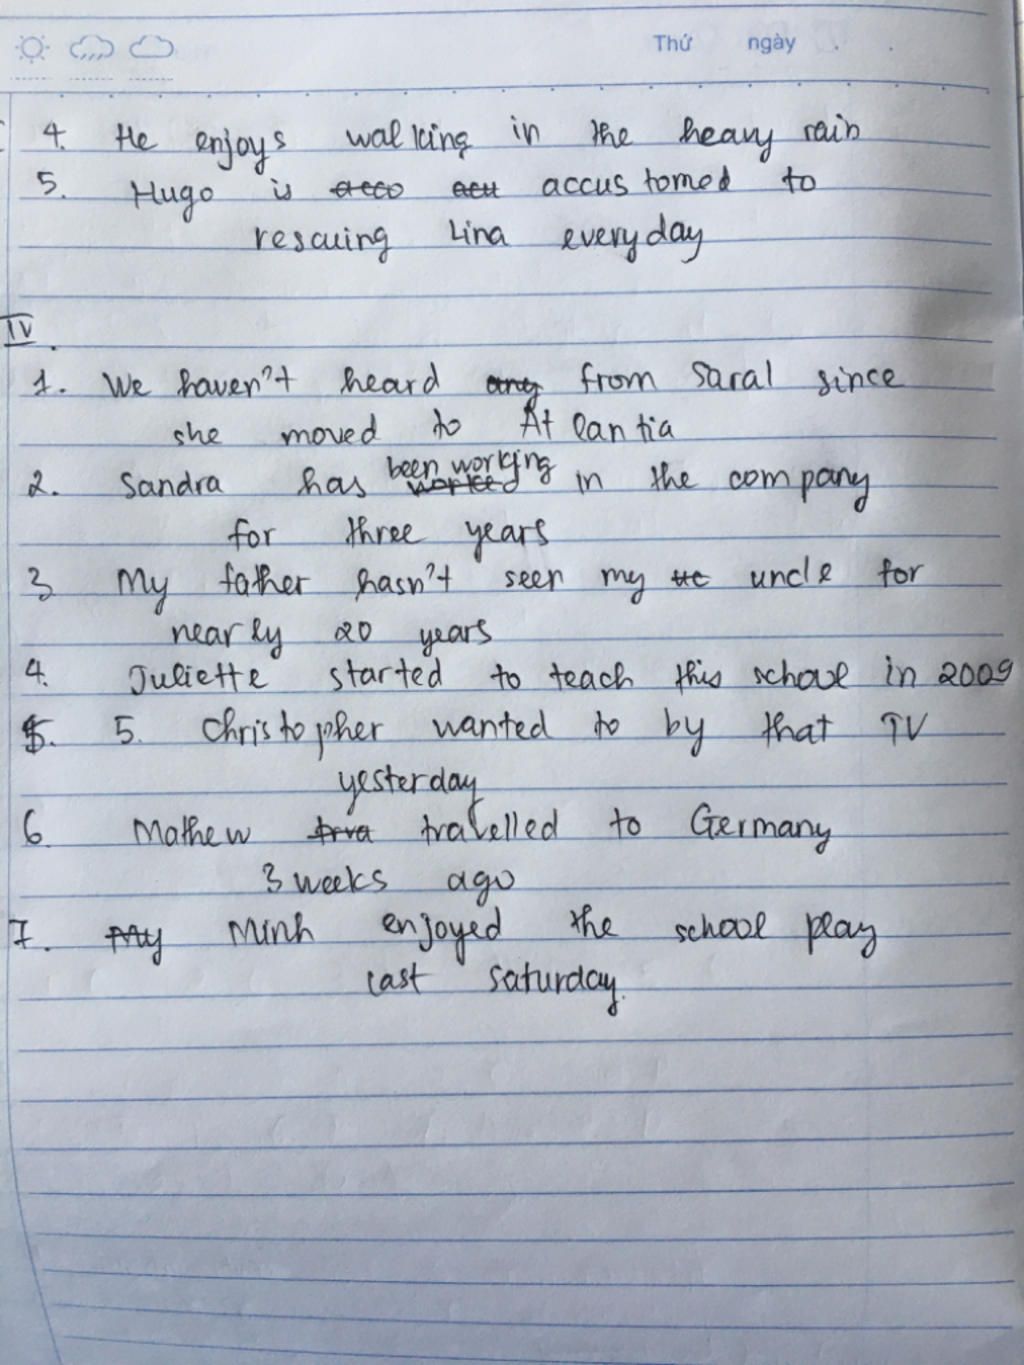 Thứ ngày
4. He enjoys walking in the heavy rain
5. Hugo is acco acu accustomed to
rescuing Lina everyday
IV.
1. We haven't heard any from Saral since
she moved to Atlantia
been working
2. Sandra has worked in the company
for three years
3 My father hasn't seen my uc uncle for
nearly 20 years
4. Juliette started to teach this school in 2009
5. 5. Christopher wanted to by that TV
yesterday
6 Mathew trva travelled to Germany
3 weeks ago
7. My Minh enjoyed the school play
last saturday.